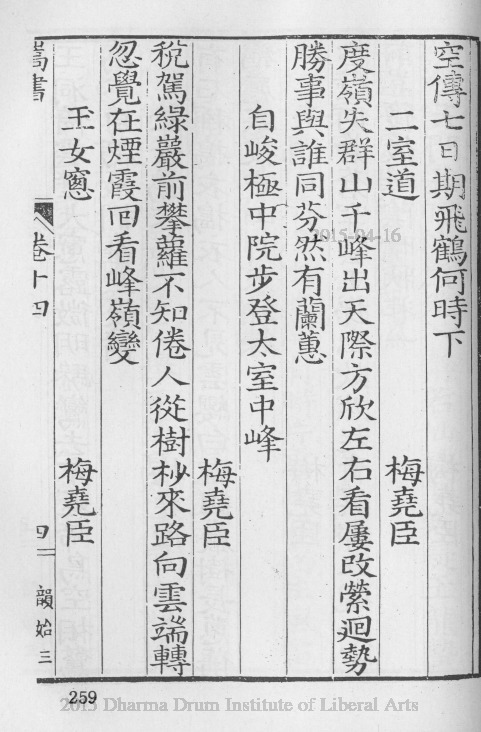 空傳七日期飛鶴何時下
二室道
梅堯臣
度嶺失群山千峰出天際方欣左右看屢改縈迴勢
勝事與誰同芬然有蘭蕙
自峻極中院步登太室中峰
梅堯臣
稅駕綠巖前攀蘿不知倦人從樹杪來路向雲端轉
忽覺在煙霞回看峰嶺變
玉女窻
梅堯臣
嵩書
卷十四
四
韻始三
259
2015-04-16
2015 Dharma Drum Institute of Liberal Arts